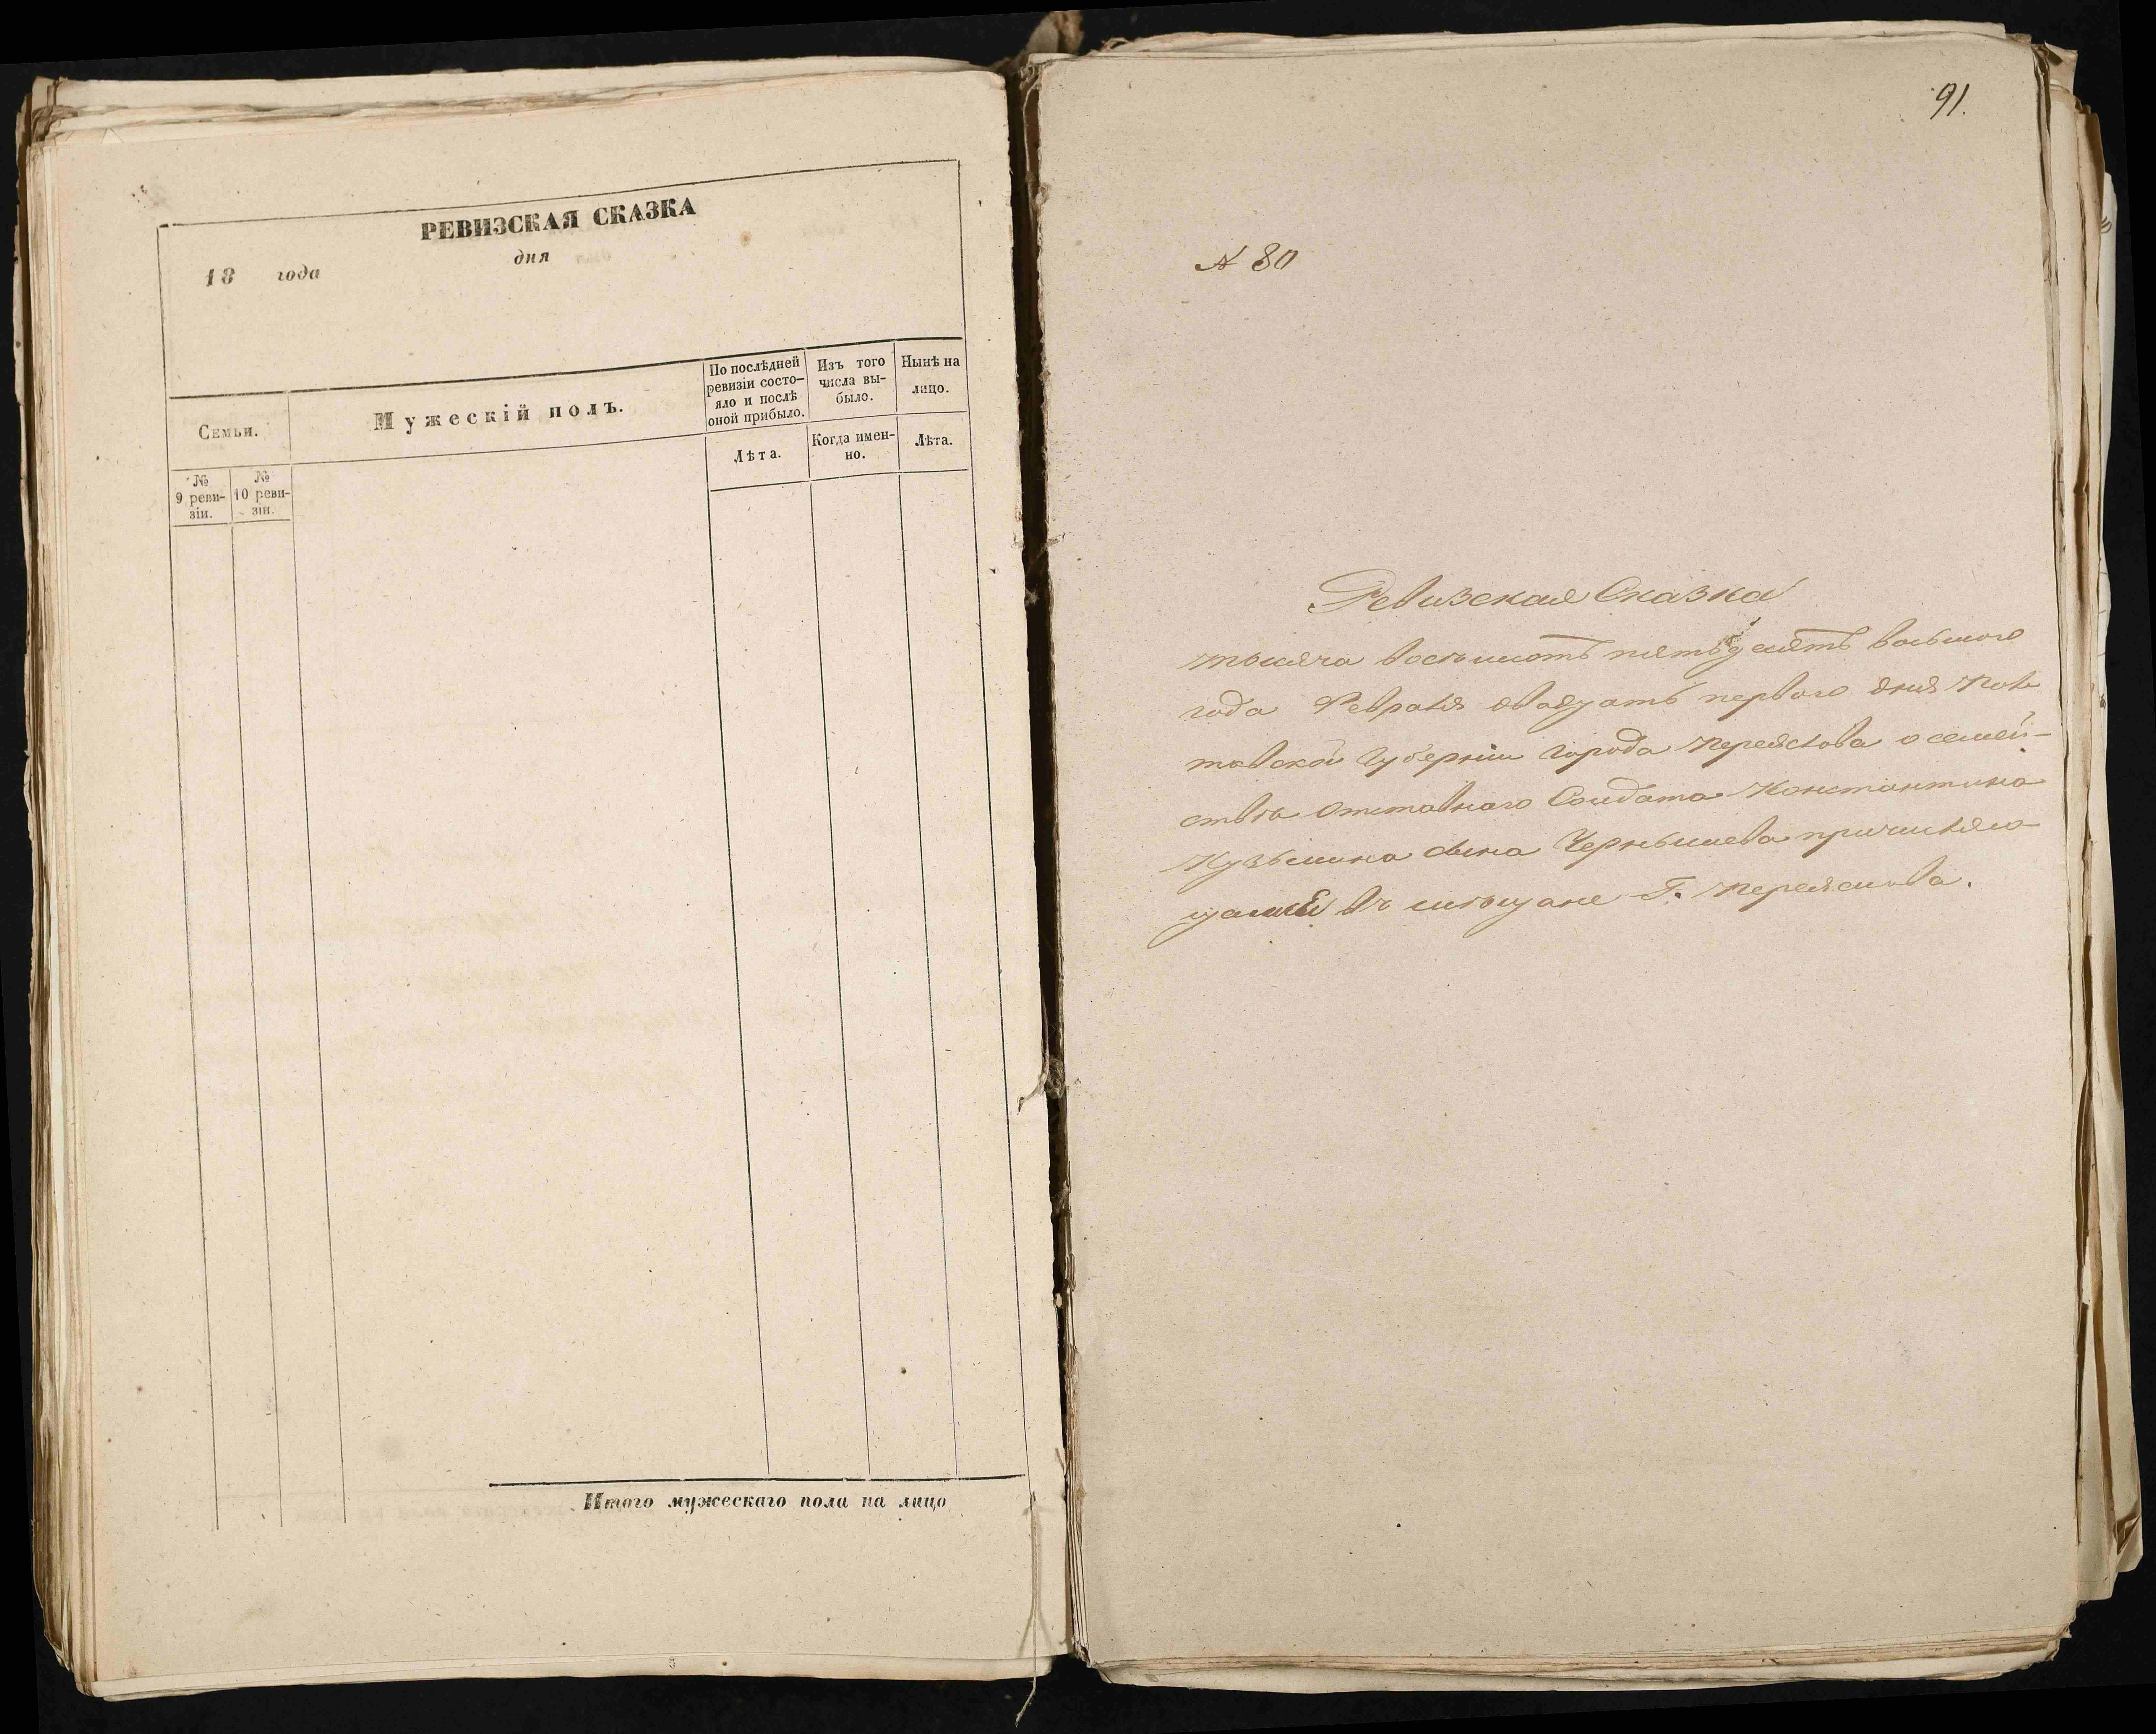 РЕВИЗСКАЯ СКАЗКА
18 года дня
Семьи.
Мужескій полъ.
По послѣдней ревизіи состо-
яло и послѣ оной прибыло.
Изъ того числа вы-
было.
Нынѣ на лицо.
Лѣта.
Когда имен-
но.
Лѣта.
№ 9 реви-
зіи.
№ 10 реви-
зіи.
Итого мужескаго пола на лицо
91.
№ 80
Ревизская Сказка
тысяча восемьсотъ пятьдесятъ восьмого
года Февраля двадцать перваго дня Пол
тавской Губерніи Города Переяслова о семей-
ствѣ Отставнаго Солдата Константина
Кузьмина сына Чернышева причисляю-
щагося въ мѣщане Г. Переяслова.